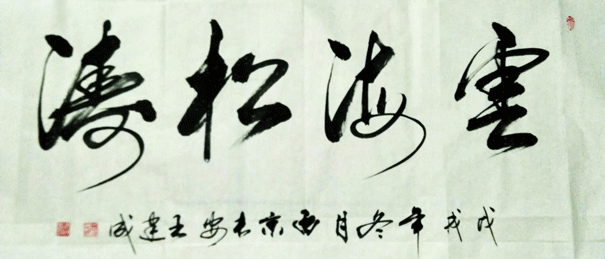 雲海松涛
戊戌年冬月西京长安王建成